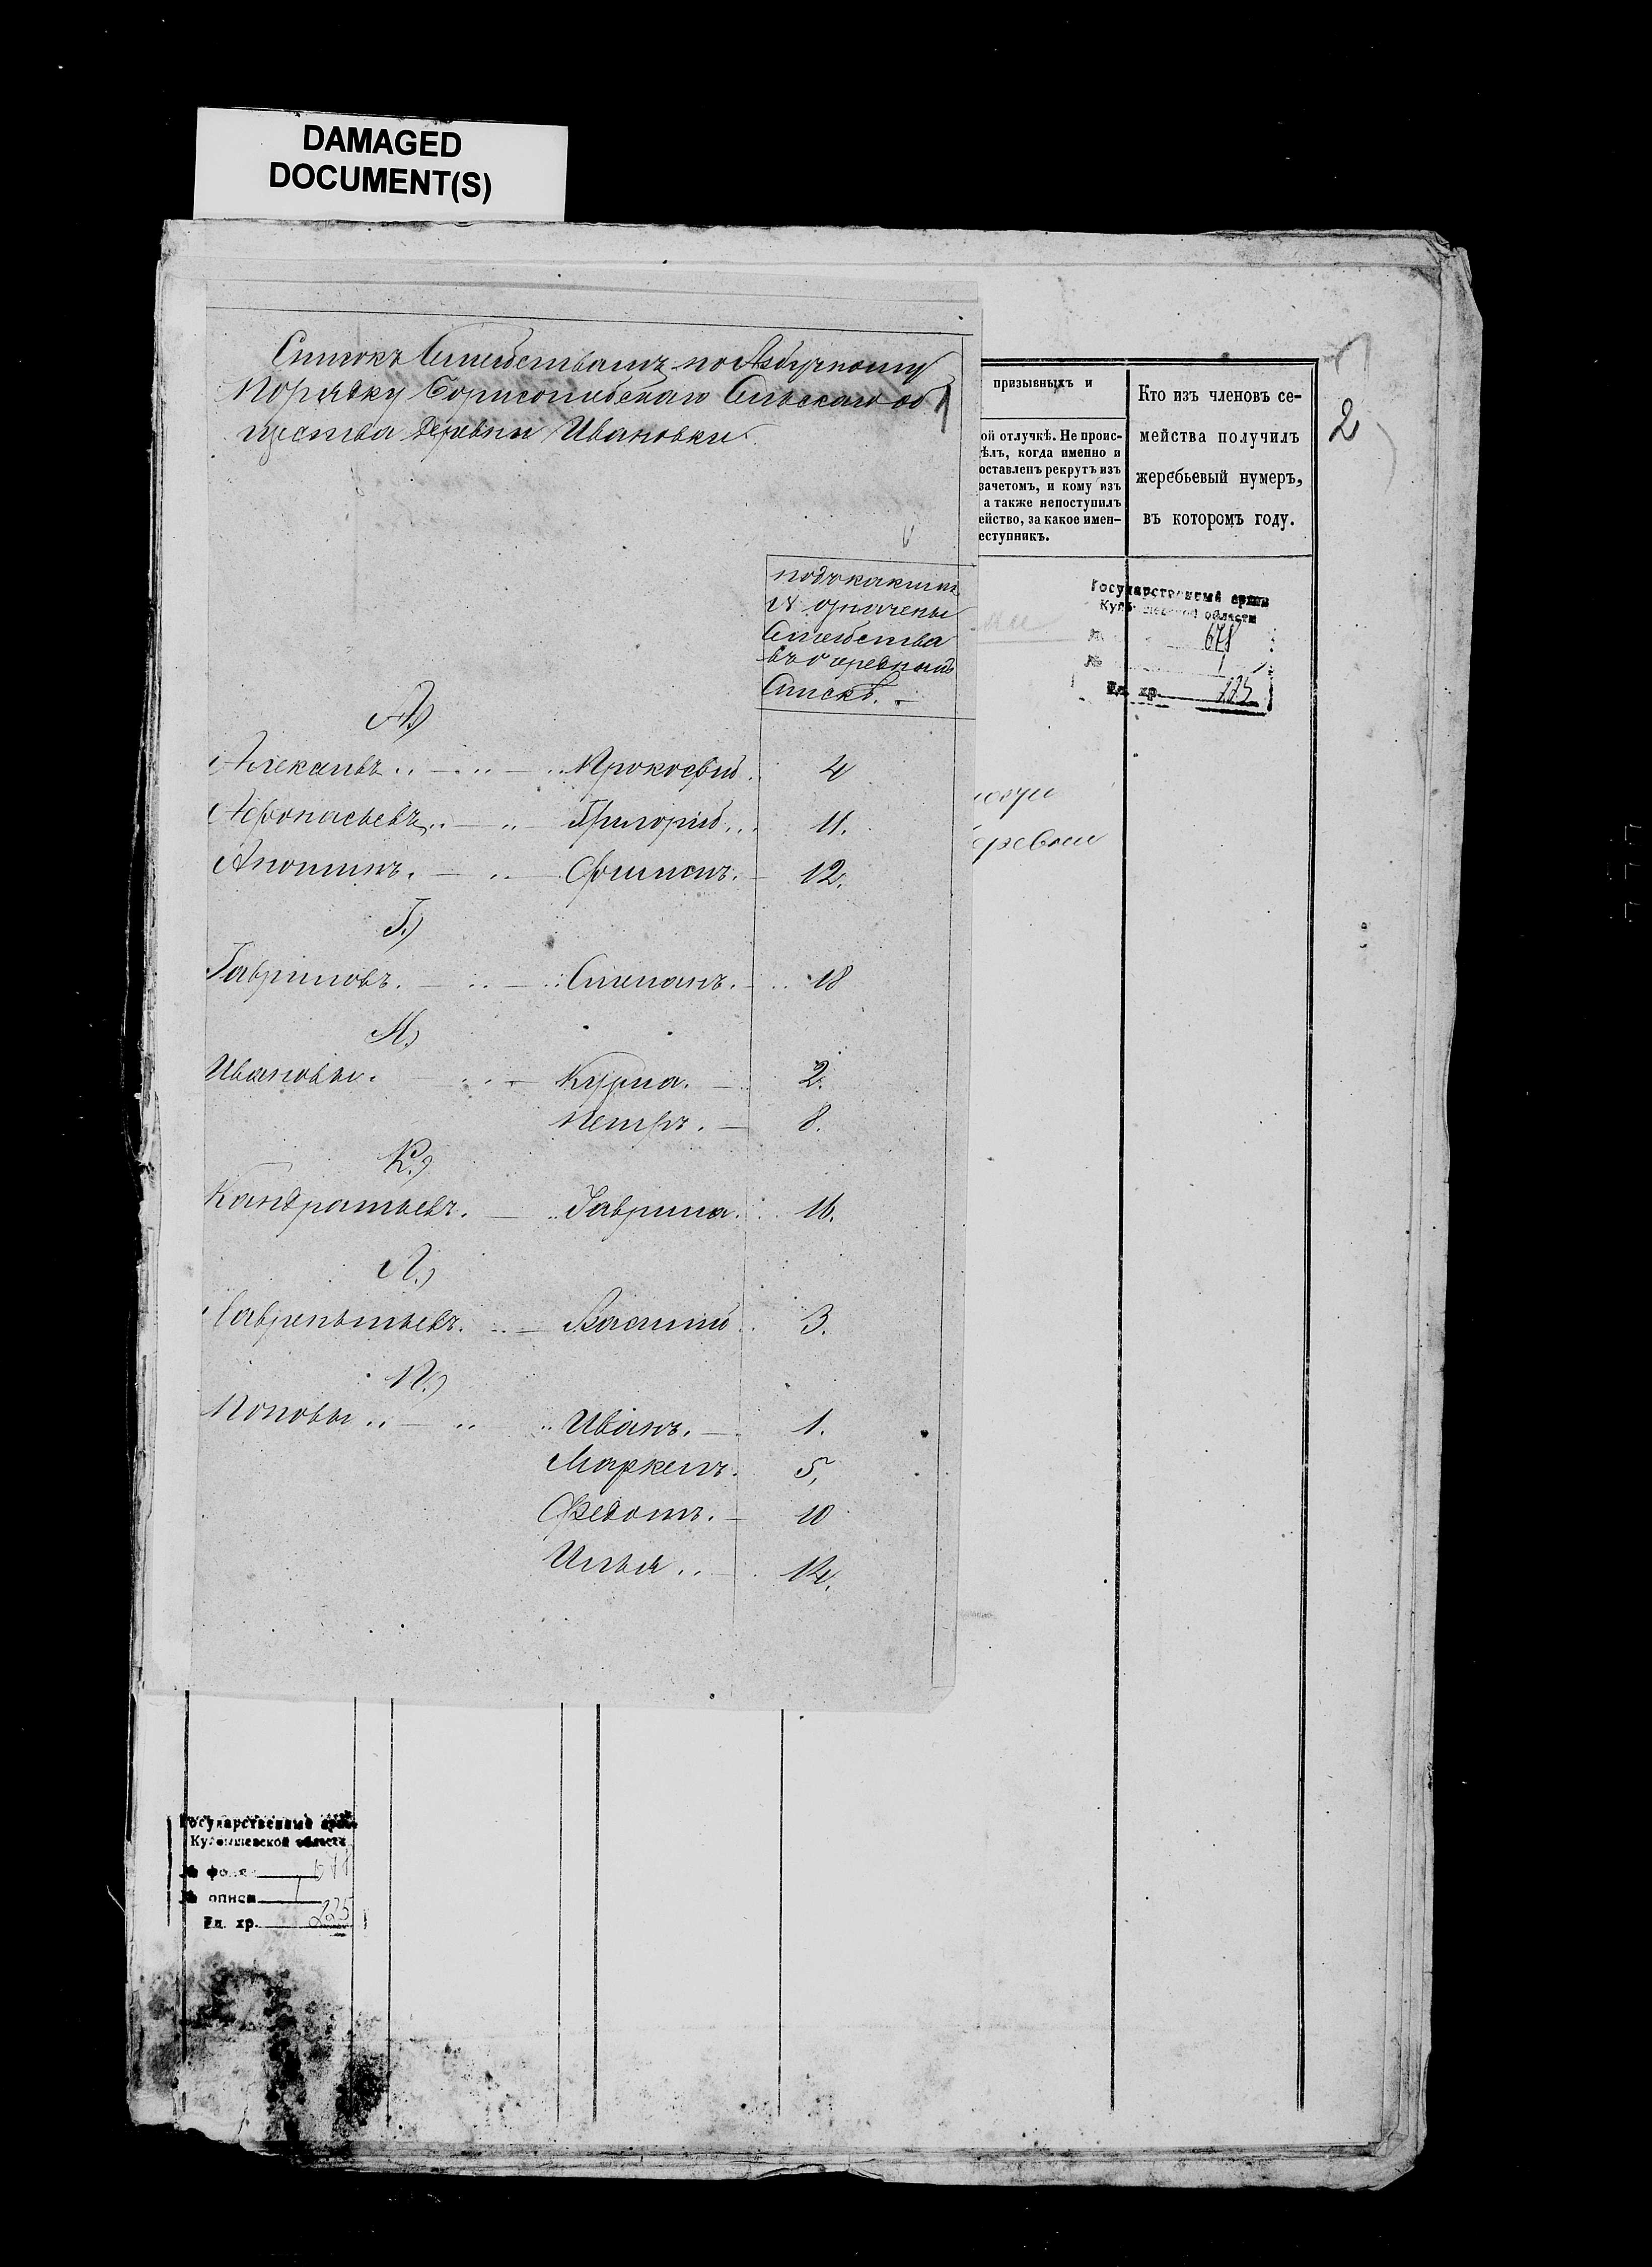 DAMAGED
DOCUMENT(S)
Списокъ Семействамъ по Азбучному
Порядку Борисоглебскаго Сельскаго об
щества деревни Ивановки
1
подъ какимъ
№ значены
Семейства
въ очередномъ
Спискѣ.
А.)
Алекаивъ Прокофий 4
Афонасьевъ Григорий 11.
Аношинъ. Филипъ. 12.
Г.)
Гавриловъ. Степанъ. 18
И.)
Ивановы. Курма. 2.
Петръ. 8.
К.)
Кандратьевъ. Гаврила. 16.
Л.)
Лаврентьевъ. Василий 3.
П.)
Поповы Иванъ. 1.
Маркелъ. 5,
Федотъ. 10
Илья 14.
призывныхъ и
ой отлучкѣ. Не проис-
ѣлъ, когда именно и
оставленъ рекрутъ изъ
зачетомъ, и кому изъ
а также непоступилъ
ейство, за какое имен-
еступникъ.
Кто изъ членовъ се-
мейства получилъ
жеребьевый нумеръ,
въ которомъ году.
2
Государственный архив
Куйбышевской области
№ 678
№ 1
Ед. хр. 225
еревни
Государственный архив
Куйбышевской области
№ фонда 678
№ описи 1
Ед. хр. 225